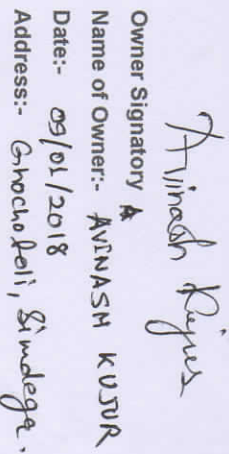 Avinash Kujur
Owner Signatory
Name of Owner:- AVINASH KUJUR
Date:- 09/01/2018
Address:- Ghochotoli, Simdega.